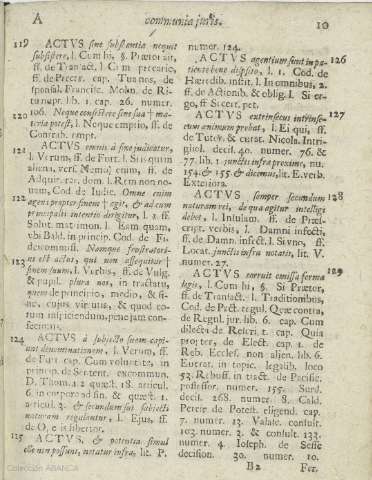 A communia juris. 10
119 ACTVS sine substantia nequit
subsistere, l. Cum hi, §. Prætor ait,
ff. de Transact. l. Cum precario,
ff. de Precar. cap. Tua nos, de
sponsal. Francisc. Molin. de Ri-
tu nupt. lib. 1. cap. 26. numer.
120 106. Neque consistere sine sua † ma-
teria potest, l. Neque emptio, ff. de
Contrah. empt.
121 ACTVS omnis à fine judicatur,
l. Verum, ff. de Furt. l. Si is qui in
aliena, vers. Nemo enim, ff. de
Adquir. rer. dom. l. Rem non no-
uam, Cod. de Judic. Omne enim
122 agens propter finem † agit, & ad eum
principaliter intentio dirigitur, l. 2. ff.
Solut. matrimon. l. Eam quam,
vbi Bald. in princip. Cod. de Fi-
deicommiss. Namque frustratori-
123 us est actus, qui non assequitur †
finem suum, l. Verbis, ff. de Vulg.
& pupil. plura nos, in tractatu,
quem de principio, medio, & fi-
ne, cujus vis vnita, & quod to-
tum
penè jam con-
fecimus.
124 ACTVS à subjecto suam capi-
unt denominationem, l. Verum, ff.
de Furt. cap. Cum voluntate, in
princip. de Sentent. excommun.
D. Thom. 1. 2. quæst. 18. articul.
6. in corpore ad fin. & quæst. 1.
articul. 3. & secundum sui subjecti
naturam regulantur, l. Ejus, ff.
de O, e is libertor.
125 ACTVS, & potentia simul
esse non possunt, notatur infra, lit. P.
numer. 124.
ACTVS agentium sunt in pa- 126
tiente bene disposito, l. 1. Cod. de
Hæredib. instit. l. In omnibus, 2.
ff. de Actionib. & oblig. l. Si er-
go, ff. Si cert. pet.
ACTVS extrinsecus intrinse- 127
cum animum probat, l. Ei qui, ff.
de Tutel. & curat. Nicola. Intri-
gliol. decis. 40. numer. 76. &
77. lib. 1. junctis infra proximè, nu.
154. & 155. & dicimus, lit. E. verb.
Exteriora.
ACTVS semper secundum 128
naturam rei, de qua agitur intelligi
debet, l. Insulam, ff. de Præs-
cript. verbis, l. Damni infecti,
ff. de Damn. infect. l. Si vno, ff.
Locat. junctis infra notatis, lit. V.
numer. 27.
ACTVS corruit omissa forma 129
legis, l. Cum hi, §. Si Prætor,
ff. de Transact. l. Traditionibus,
Cod. de Pact. regul. Quæ contra,
de Regul. jur. lib. 6. cap. Cum
dilecta de Rescrt. cap. Quia
propter, de Elect. cap. 1. de
Reb. Eccles. non alien. lib. 6.
Euerat. in topic. legalib. loco
53. Rebuff. in tract. de Pacific.
possessor. numer. 155. Surd.
decis. 268. numer. 8. Cald.
Pereir. de Potest. eligend. cap.
7. numer. 13. Valasc. consult.
103. numer. 2. & consult. 133.
numer. 4. Ioseph. de Sesse
decision. 30. numer. 10.
B2 Fer.
Colección ABANCA